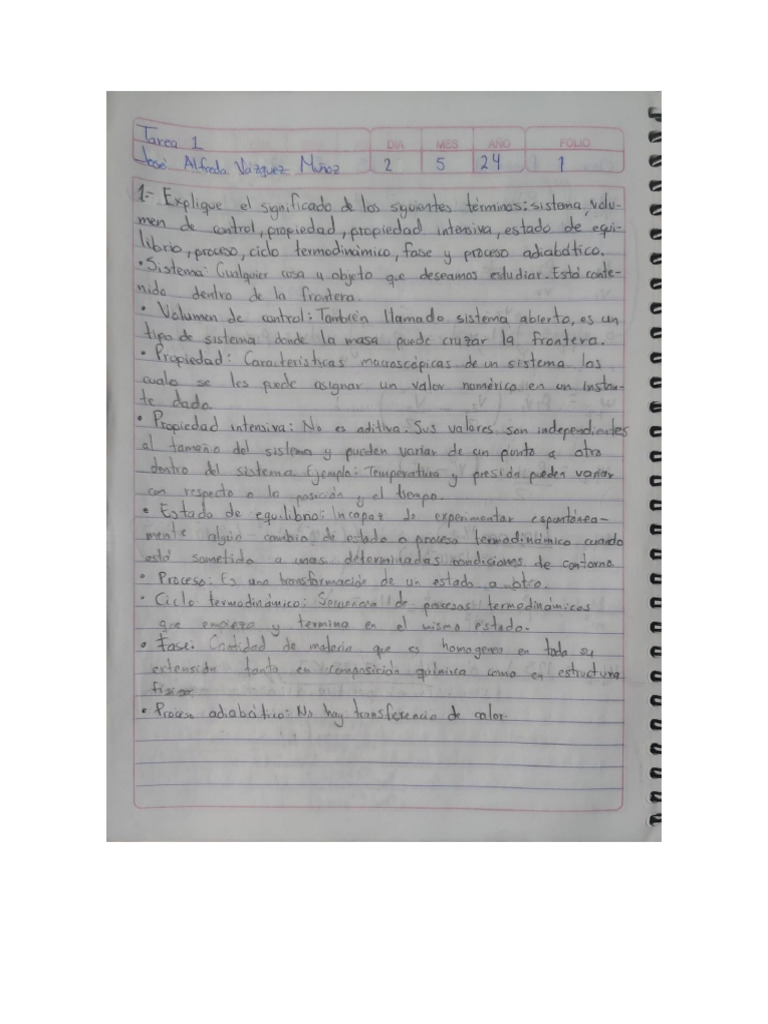 Tarea 1
DIA MES AÑO FOLIO
José Alfredo Vázquez Muñoz 2 5 24 1
1.- Explique el significado de los siguientes términos: sistema, volu-
men de control, propiedad, propiedad intensiva, estado de equi-
librio, proceso, ciclo termodinámico, fase y proceso adiabático.
• Sistema: Cualquier cosa u objeto que deseamos estudiar. Está conte-
nido dentro de la frontera.
• Volumen de control: También llamado sistema abierto, es un
tipo de sistema donde la masa puede cruzar la frontera.
• Propiedad: Características macroscópicas de un sistema las
cuale se les puede asignar un valor numérico en un instan-
te dado.
• Propiedad intensiva: No es aditiva. Sus valores son independientes
al tamaño del sistema y pueden variar de un punto a otro
dentro del sistema. Ejemplo: Temperatura y presión pueden variar
con respecto a la posición y el tiempo.
• Estado de equilibrio: Incapaz de experimentar espontánea-
mente algún cambio de estado o proceso termodinámico cuando
está sometido a unas determinadas condiciones de contorno.
• Proceso: Es una transformación de un estado a otro.
• Ciclo termodinámico: Secuencia de procesos termodinámicos
que empieza y termina en el mismo estado.
• Fase: Cantidad de materia que es homogenea en toda su
extensión tanto en composición química como en estructura
física.
• Proceso adiabático: No hay transferencia de calor.